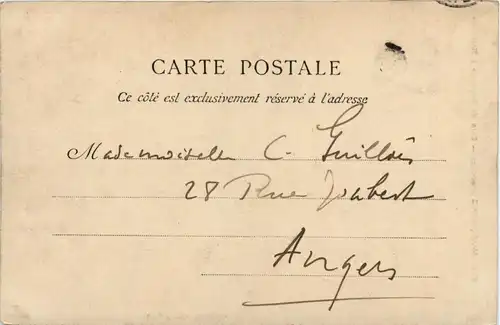 CARTE POSTALE
Ce côté est exclusivement réservé à l'adresse
Mademoiselle C. Guillois
28 Rue Joubert
Angers